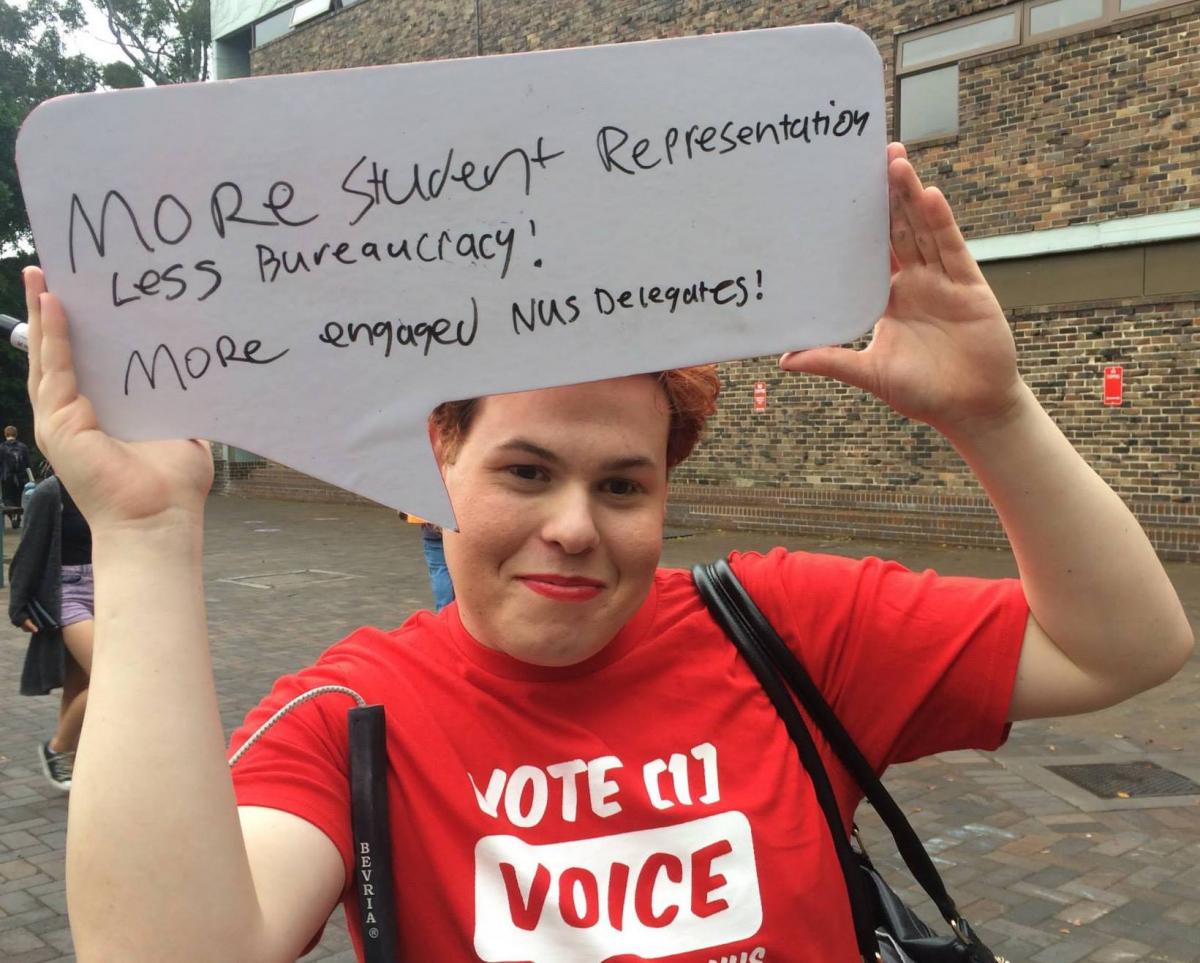 MORE Student Representation
Less Bureaucracy!
MORE engaged NUS Delegates!
VOTE [1]
VOICE
NUS
BEVRIA®